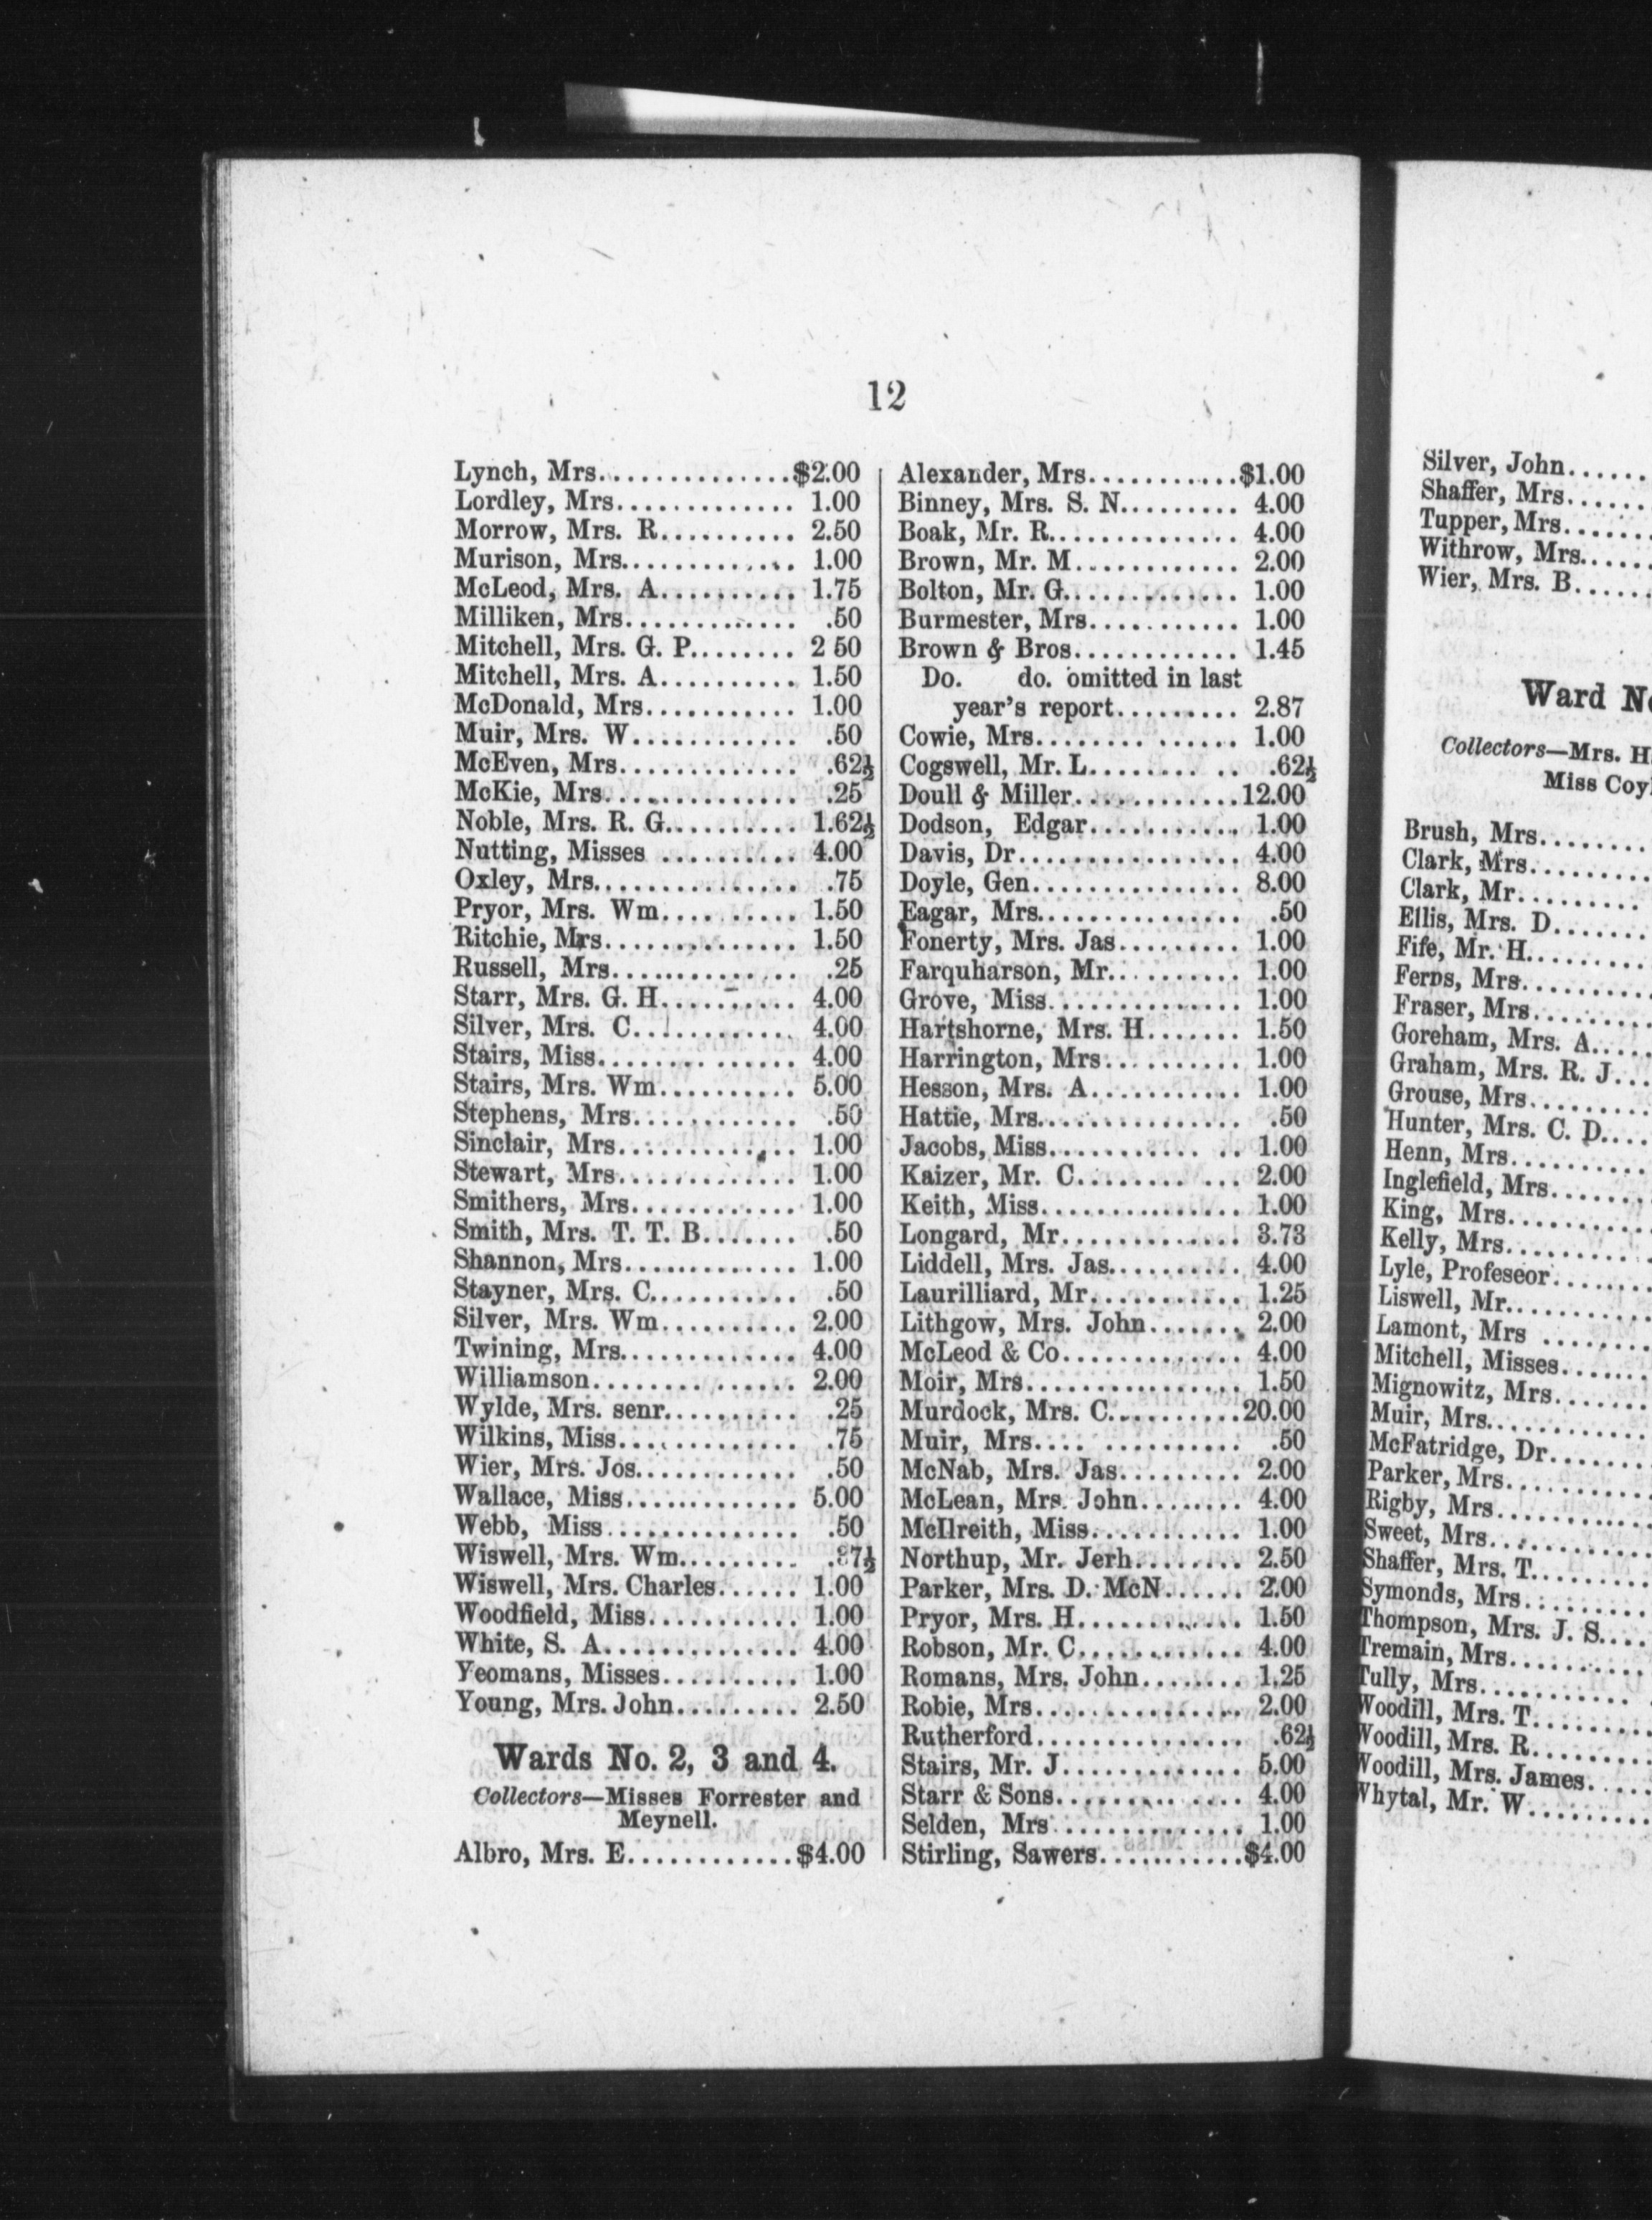 12
Lynch, Mrs...............$2.00
Lordley, Mrs............. 1.00
Morrow, Mrs. R.......... 2.50
Murison, Mrs............. 1.00
McLeod, Mrs. A.......... 1.75
Milliken, Mrs............. .50
Mitchell, Mrs. G. P........ 2 50
Mitchell, Mrs. A.......... 1.50
McDonald, Mrs........... 1.00
Muir, Mrs. W............. .50
McEven, Mrs.............. .62½
McKie, Mrs............... .25
Noble, Mrs. R. G.......... 1.62½
Nutting, Misses .......... 4.00
Oxley, Mrs................ .75
Pryor, Mrs. Wm.......... 1.50
Ritchie, Mrs.............. 1.50
Russell, Mrs.............. .25
Starr, Mrs. G. H.......... 4.00
Silver, Mrs. C............ 4.00
Stairs, Miss............... 4.00
Stairs, Mrs. Wm.......... 5.00
Stephens, Mrs............. .50
Sinclair, Mrs.............. 1.00
Stewart, Mrs.............. 1.00
Smithers, Mrs............. 1.00
Smith, Mrs. T. T. B....... .50
Shannon, Mrs............. 1.00
Stayner, Mrs. C........... .50
Silver, Mrs. Wm.......... 2.00
Twining, Mrs............. 4.00
Williamson............... 2.00
Wylde, Mrs. senr.......... .25
Wilkins, Miss............. .75
Wier, Mrs. Jos............ .50
Wallace, Miss............. 5.00
Webb, Miss............... .50
Wiswell, Mrs. Wm......... .37½
Wiswell, Mrs. Charles...... 1.00
Woodfield, Miss........... 1.00
White, S. A............... 4.00
Yeomans, Misses.......... 1.00
Young, Mrs. John......... 2.50
Wards No. 2, 3 and 4.
Collectors—Misses Forrester and
Meynell.
Albro, Mrs. E............$4.00
Alexander, Mrs...........$1.00
Binney, Mrs. S. N......... 4.00
Boak, Mr. R.............. 4.00
Brown, Mr. M............ 2.00
Bolton, Mr. G............. 1.00
Burmester, Mrs........... 1.00
Brown & Bros............ 1.45
Do. do. omitted in last
year's report......... 2.87
Cowie, Mrs.............. 1.00
Cogswell, Mr. L........ .. .62½
Doull & Miller............12.00
Dodson, Edgar........... 1.00
Davis, Dr................ 4.00
Doyle, Gen............... 8.00
Eagar, Mrs............... .50
Fonerty, Mrs. Jas......... 1.00
Farquharson, Mr.......... 1.00
Grove, Miss.............. 1.00
Hartshorne, Mrs. H....... 1.50
Harrington, Mrs.......... 1.00
Hesson, Mrs. A........... 1.00
Hattie, Mrs............... .50
Jacobs, Miss........... .. 1.00
Kaizer, Mr. C........ ... 2.00
Keith, Miss............... 1.00
Longard, Mr............. 3.73
Liddell, Mrs. Jas.......... 4.00
Laurilliard, Mr........... 1.25
Lithgow, Mrs. John....... 2.00
McLeod & Co............. 4.00
Moir, Mrs................ 1.50
Murdock, Mrs. C..........20.00
Muir, Mrs.... .......... .50
McNab, Mrs. Jas......... 2.00
McLean, Mrs. John....... 4.00
McIlreith, Miss........... 1.00
Northup, Mr. Jerh........ 2.50
Parker, Mrs. D. McN...... 2.00
Pryor, Mrs. H............ 1.50
Robson, Mr. C............ 4.00
Romans, Mrs. John....... 1.25
Robie, Mrs............... 2.00
Rutherford............... .62½
Stairs, Mr. J............. 5.00
Starr & Sons............. 4.00
Selden, Mrs ............. 1.00
Stirling, Sawers...........$4.00
Silver, John......
Shaffer, Mrs......
Tupper, Mrs......
Withrow, Mrs.....
Wier, Mrs. B......
Ward
Collectors—Mrs.
Miss
Brush, Mrs........
Clark, Mrs.........
Clark, Mr.........
Ellis, Mrs. D.......
Fife, Mr. H.........
Ferns, Mrs.........
Fraser, Mrs........
Goreham, Mrs. A....
Graham, Mrs. R. J...
Grouse, Mrs........
Hunter, Mrs. C. D....
Henn, Mrs..........
Inglefield, Mrs.......
King, Mrs..........
Kelly, Mrs..........
Lyle, Profeseor.......
Liswell, Mr..........
Lamont, Mrs ........
Mitchell, Misses......
Mignowitz, Mrs.......
Muir, Mrs...........
McFatridge, Dr.......
Parker, Mrs..........
Rigby, Mrs..........
Sweet, Mrs..........
Shaffer, Mrs. T.......
Symonds, Mrs........
Thompson, Mrs. J. S....
Tremain, Mrs.........
Tully, Mrs...........
Woodill, Mrs. T.......
Woodill, Mrs. R.......
Woodill, Mrs. James....
Whytal, Mr. W........